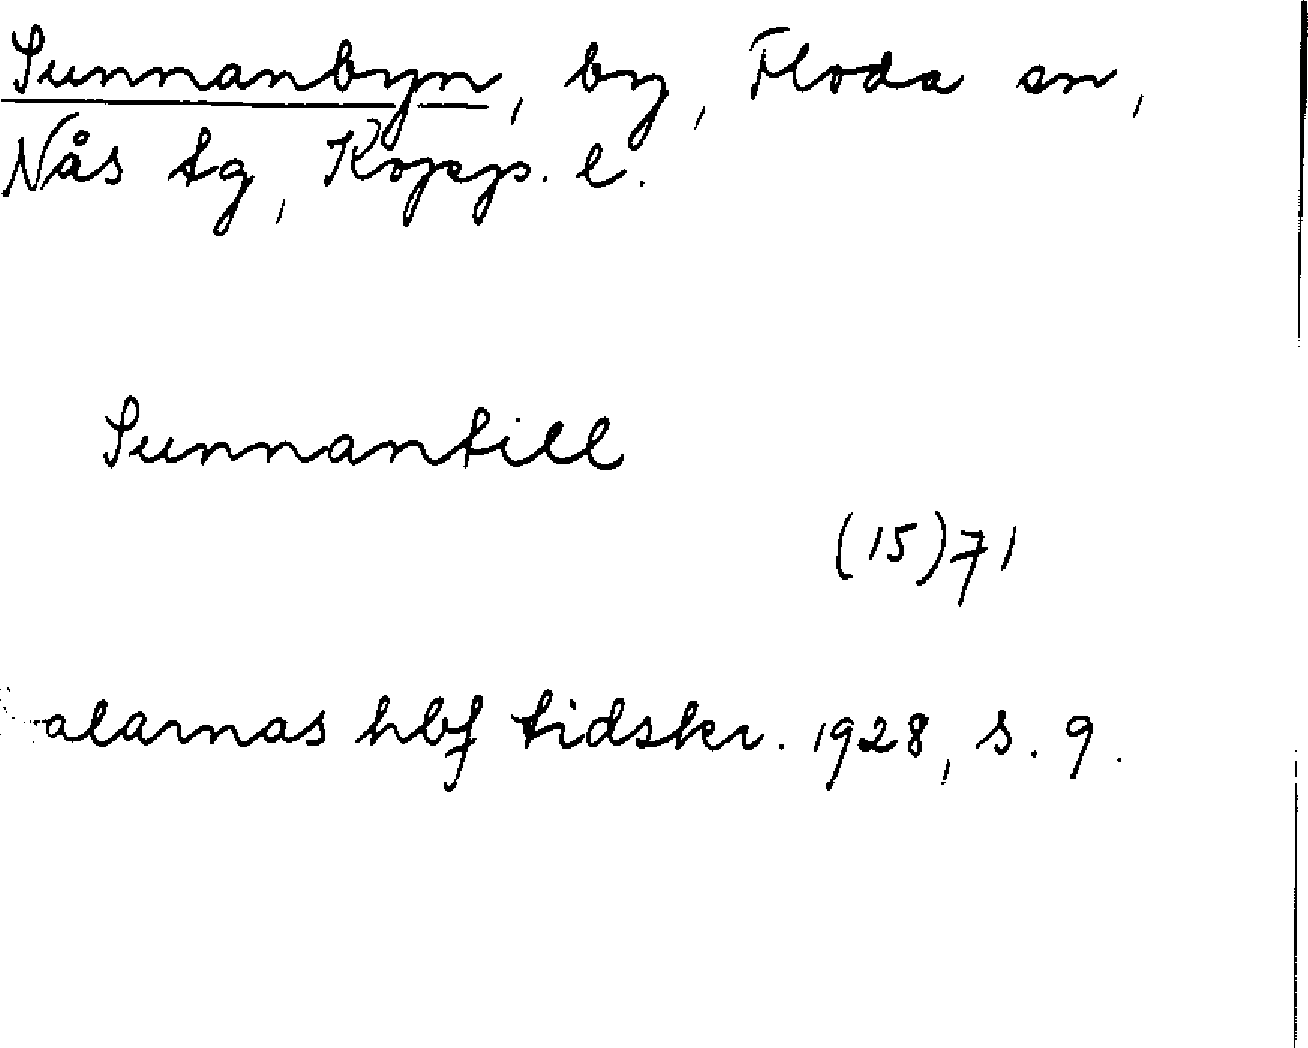 Sunnanbyn, by, Floda sn,
Nås tg, Kopp. l.
Sunnantill
(15)71
alarnas hbf tidskr. 1928, s. 9.